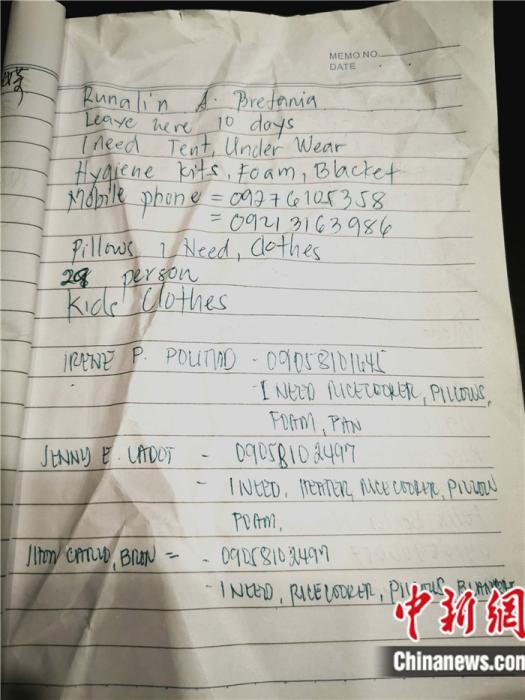 MEMO NO.
DATE
Runalin A. Bretania
Leave here 10 days
I need Tent, Under Wear
Hygiene Kits, Foam, Blacket
Mobile phone = 09276105358
= 09213163986
Pillows I Need, Clothes
person
Kids Clothes
IRENE P. - 09058101645
- I NEED RICECOOKER, PILLOWS,
FOAM, PAN
JENNY E. LADOT - 09058102497
- I NEED, HEATER, RICECOOKER, PILLOW
FOAM,
- 09058102497
- I NEED, RICECOOKER, PILLOWS,
中新网
Chinanews.com